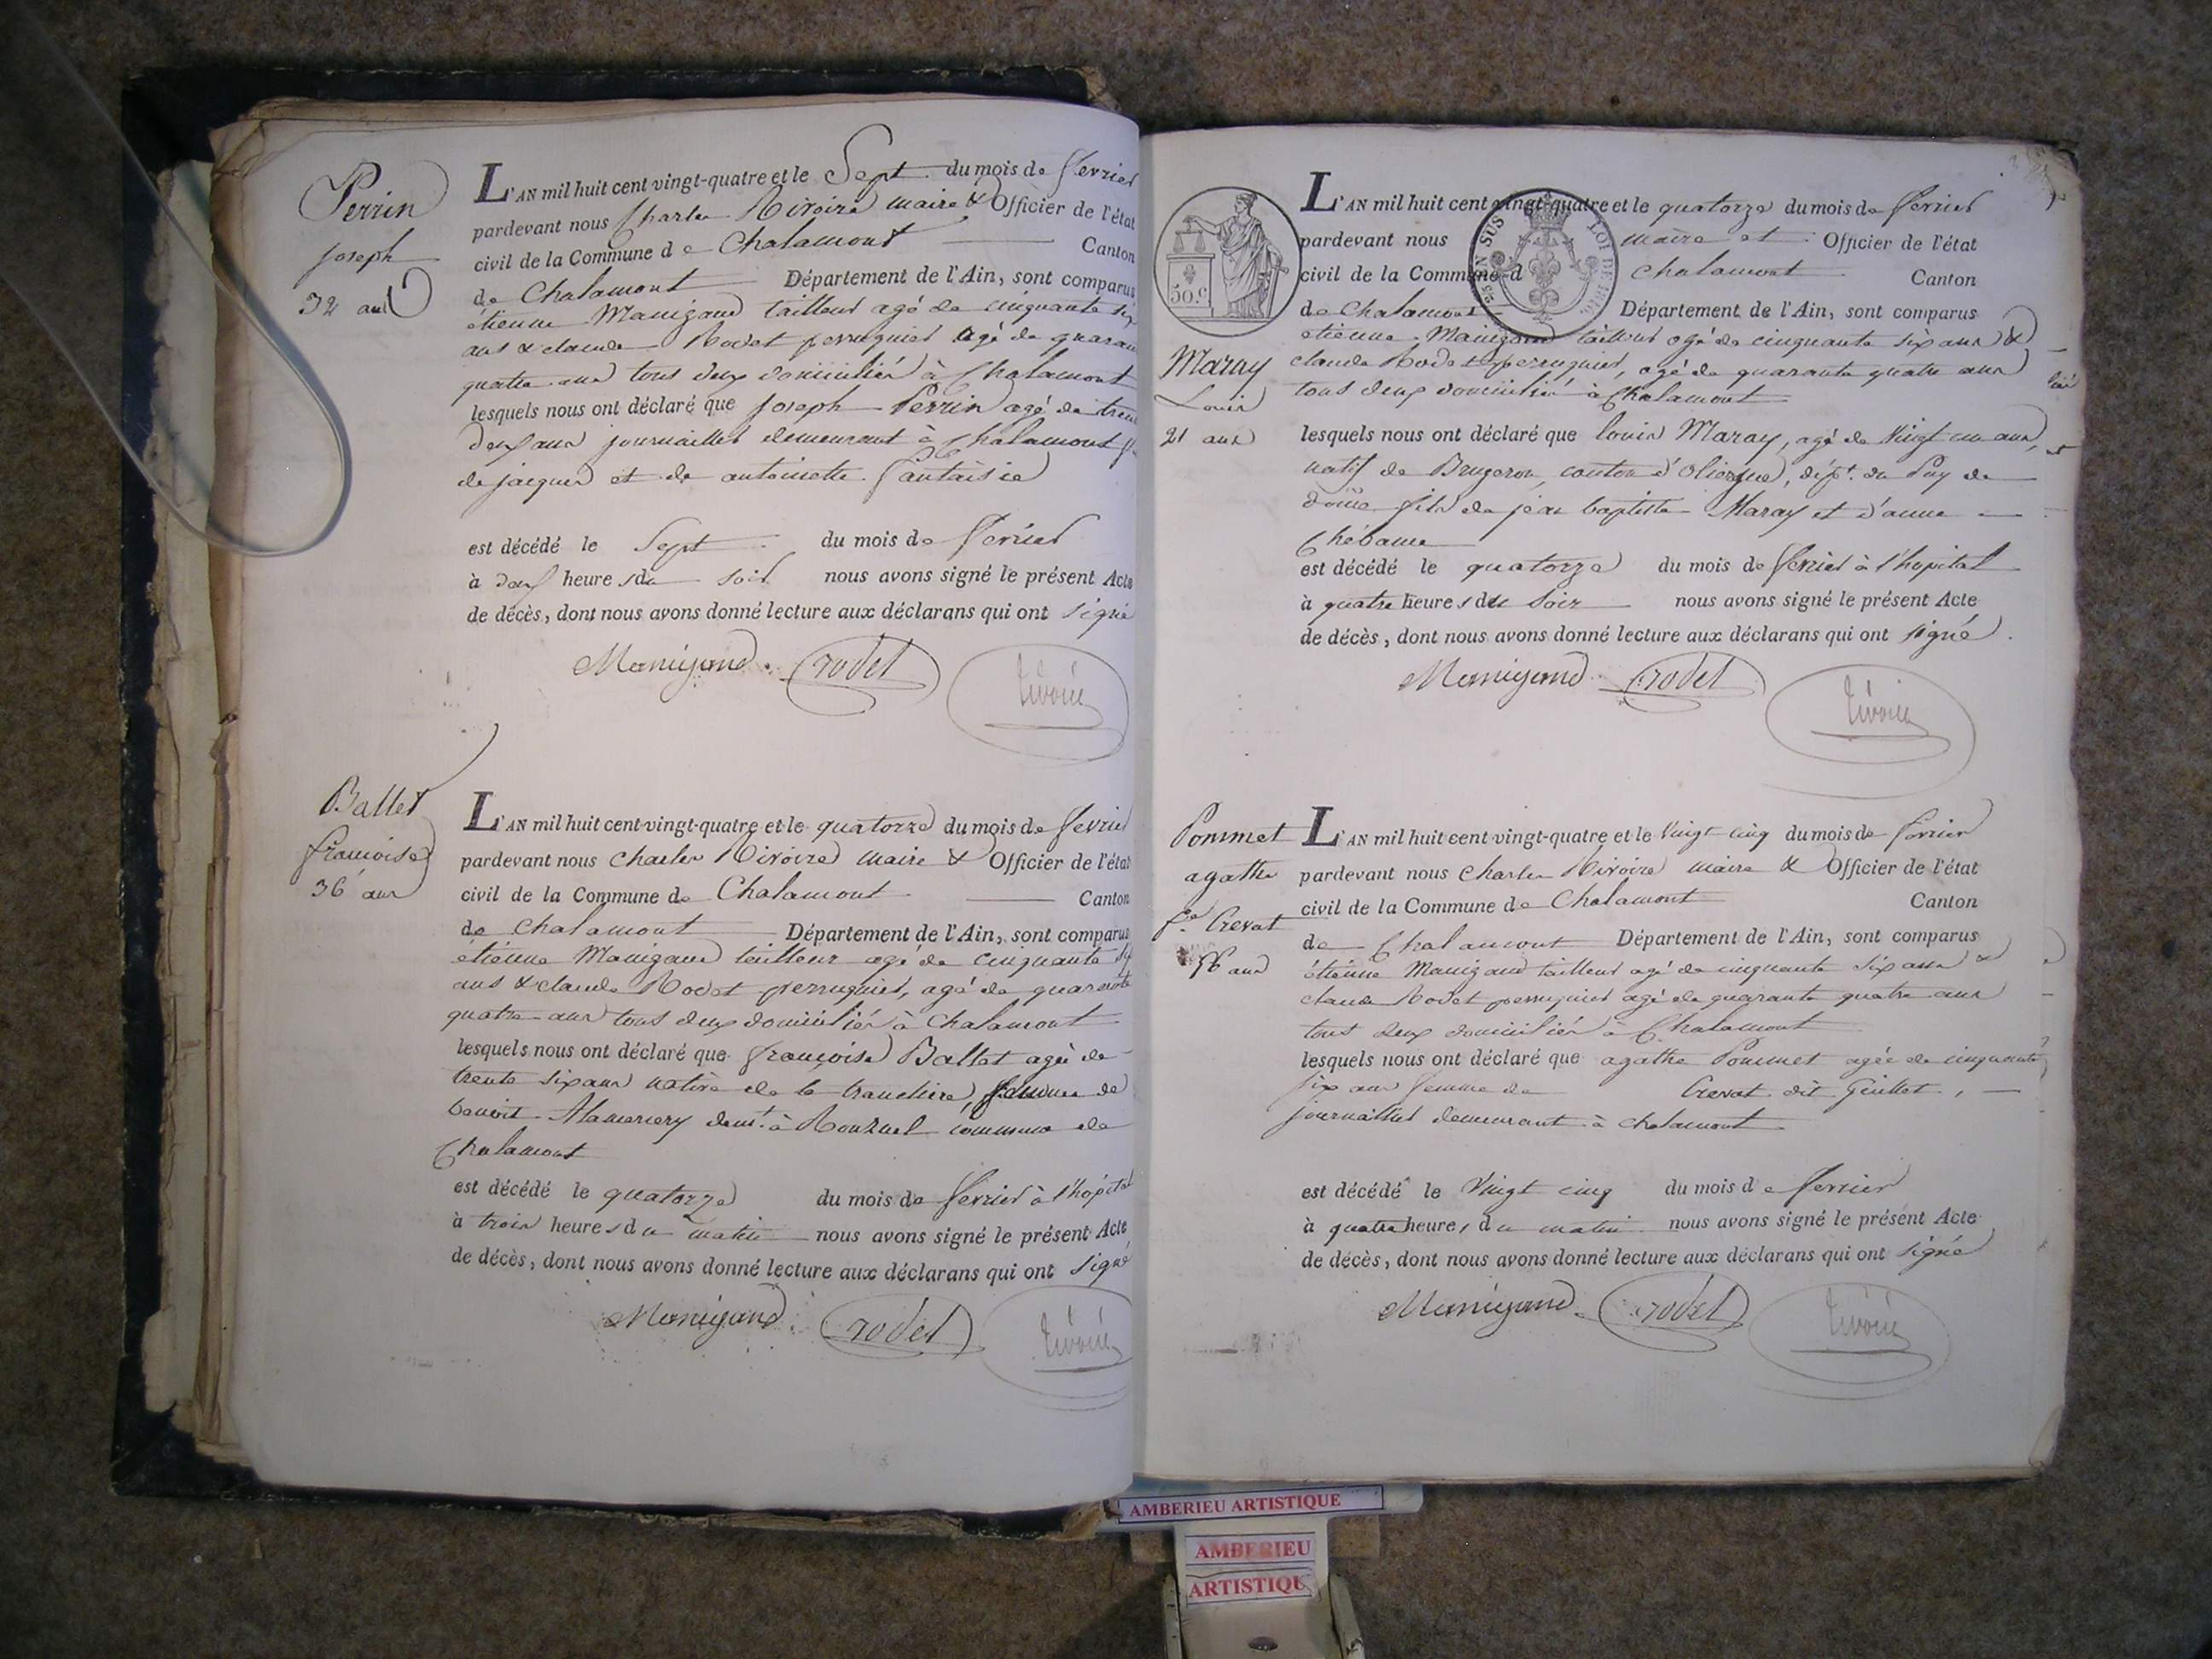 Perrin
joseph
32 ans
L'AN mil huit cent vingt-quatre et le Sept du mois de fevrier
pardevant nous Charles Rivoire maire & Officier de l'état
civil de la Commune de Chalamont Canton
de Chalamont Département de l'Ain, sont comparus
étienne Manigand tailleur agé de cinquante six
ans & claude Rodet perruquier agé de quaran
quatre ans tous deux domiciliés à Chalamont
lesquels nous ont déclaré que joseph Perrin agé de trente
deux ans journaillier demeurant à Chalamont
de jacques et de antoinette fantaisie
est décédé le Sept du mois de fevrier
à deux heures du soir nous avons signé le présent Acte
de décès, dont nous avons donné lecture aux déclarans qui ont signé
Manigand. rodet rivoire
Ballet
françoise
36 ans
L'AN mil huit cent vingt-quatre et le quatorze du mois de fevrier
pardevant nous Charles Rivoire maire & Officier de l'état
civil de la Commune de Chalamont Canton
de Chalamont Département de l'Ain, sont comparus
étienne Manigand tailleur agé de cinquante six
ans & claude Rodet perruquier, agé de quarante
quatre ans tous deux domiciliés à Chalamont
lesquels nous ont déclaré que françoise Ballet agée de
trente six ans native de la tranclière, femme de
benoit Alamercery demt. à Ronzuel commune de
Chalamont
est décédé le quatorze du mois de fevrier à l'hopital
à trois heures du matin nous avons signé le présent Acte
de décès, dont nous avons donné lecture aux déclarans qui ont signé
Manigand. rodet rivoire
50 c.
EN SUS LOI DE 1816
L'AN mil huit cent vingt-quatre et le quatorze du mois de fevrier
pardevant nous maire et Officier de l'état
civil de la Commune d Chalamont Canton
de Chalamont Département de l'Ain, sont comparus
Maray
Louis
21 ans
etienne Manigand tailleur agé de cinquante six ans &
claude Rodet perruquier, agé de quarante quatre ans
tous deux domiciliés à Chalamont
lesquels nous ont déclaré que louis Maray, agé de Vingt un ans,
natif de Brugeron, canton d'Oliergue, dépt. du Puy de
dôme fils de jean baptiste Maray et d'anne
Chébance
est décédé le quatorze du mois de fevrier à l'hopital
à quatre heures du Soir nous avons signé le présent Acte
de décès, dont nous avons donné lecture aux déclarans qui ont signé.
Manigand. rodet rivoire
Pommet
agathe
fe. Crevat
56 ans
L'AN mil huit cent vingt-quatre et le Vingt cinq du mois de fevrier
pardevant nous Charles Rivoire maire & Officier de l'état
civil de la Commune de Chalamont Canton
de Chalamont Département de l'Ain, sont comparus
étienne Manigand tailleur agé de cinquante six ans &
claude Rodet perruquier agé de quarante quatre ans
tous deux domiciliés à Chalamont
lesquels nous ont déclaré que agathe Pommet agée de cinquante
six ans femme de Crevat dit Guillot,
journaillier demeurant à chalamont
est décédé le Vingt cinq du mois de fevrier
à quatre heures du matin nous avons signé le présent Acte
de décès, dont nous avons donné lecture aux déclarans qui ont signé
Manigand. rodet rivoire
AMBERIEU ARTISTIQUE
AMBERIEU
ARTISTIQUE